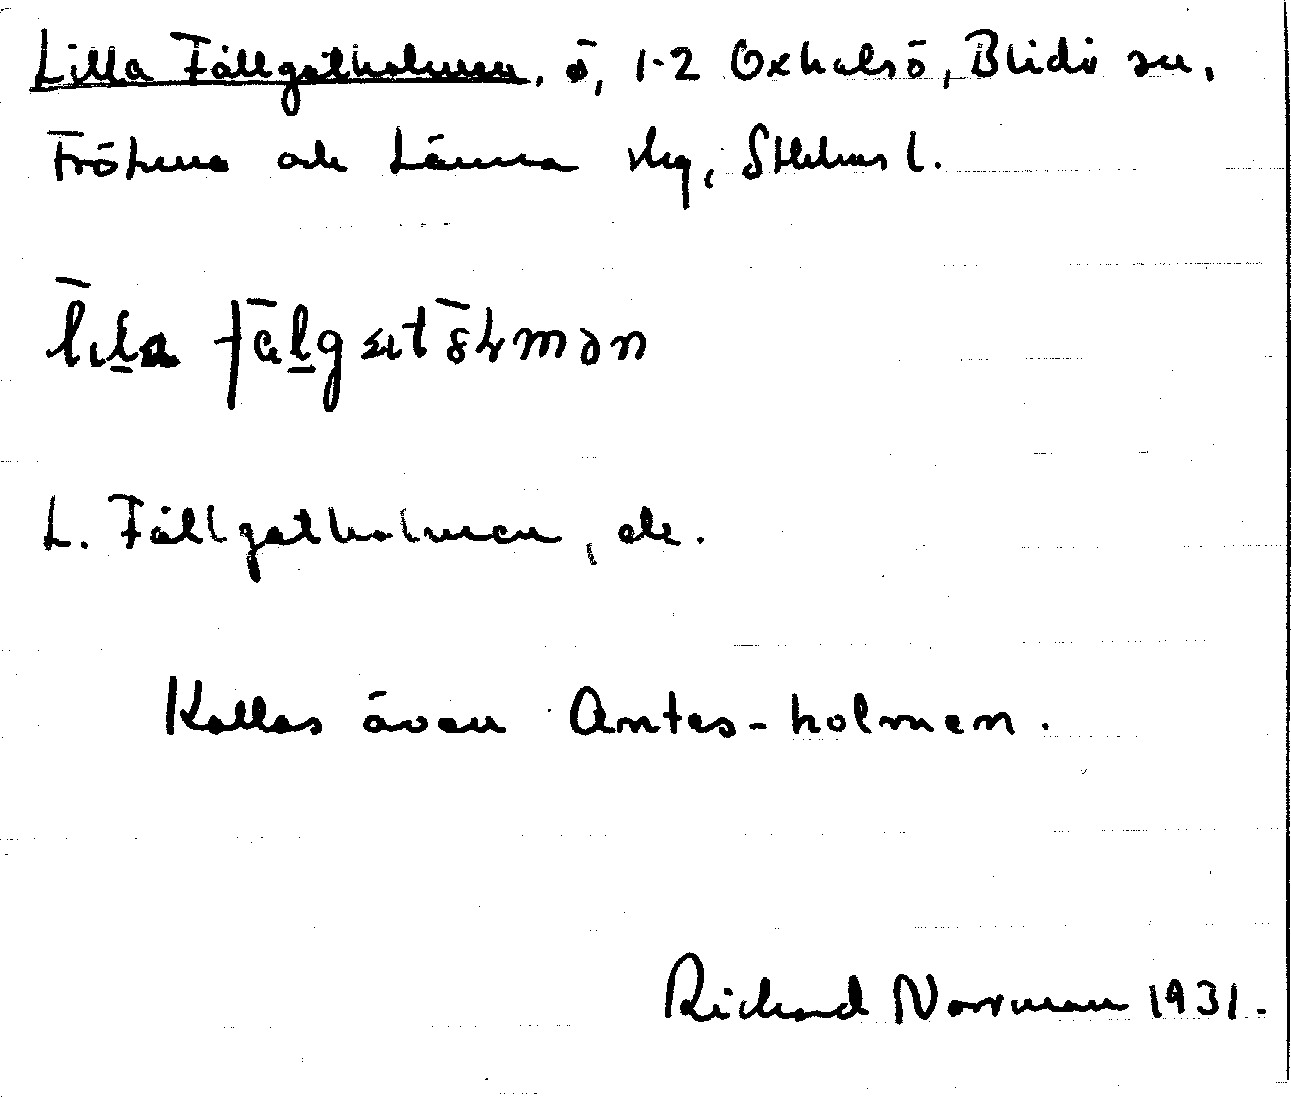 Lilla Fällgatholmen, ö, 1-2 Oxhalsö, Blidö sn,
Frötuna och Länna skg, Sthlms l.
L. Fällgatholmen, ek.
Kallas även Antes-holmen.
Richard Norrman 1931.